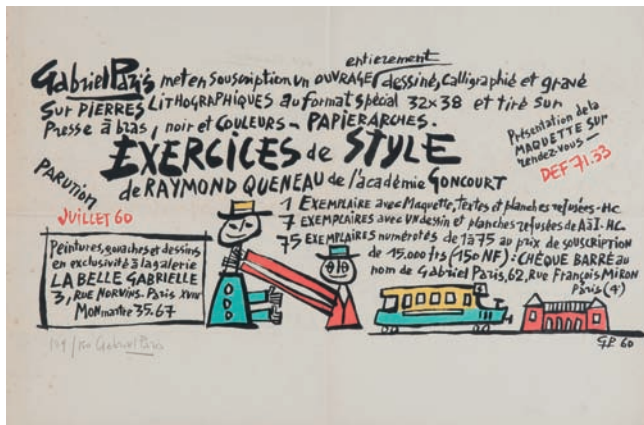 entièrement
Gabriel Paris met en souscription un OUVRAGE dessiné, calligraphié et gravé
sur PIERRES LITHOGRAPHIQUES au format spécial 32x38 et tiré sur
Presse à bras, noir et COULEURS - PAPIER ARCHES.
Présentation de la
MAQUETTE SUR
rendez-vous -
DEF 71.33
EXERCICES de STYLE
de RAYMOND QUENEAU de l'académie GONCOURT
PARUTION
JUILLET 60
1 EXEMPLAIRE avec Maquette, textes et planches refusées - HC
7 EXEMPLAIRES avec UN dessin et planches refusées de A à I - HC.
75 EXEMPLAIRES numérotés de 1 à 75 au prix de souscription
de 15.000 frs (150 NF) : CHÈQUE BARRÉ au
nom de Gabriel Paris, 62, rue François MIRON
Paris (4e)
Peintures, gouaches et dessins
en exclusivité à la galerie
LA BELLE GABRIELLE
3, RUE NORVINS. Paris XVIII
MONmartre 35.67
GP. 60
Gabriel Paris